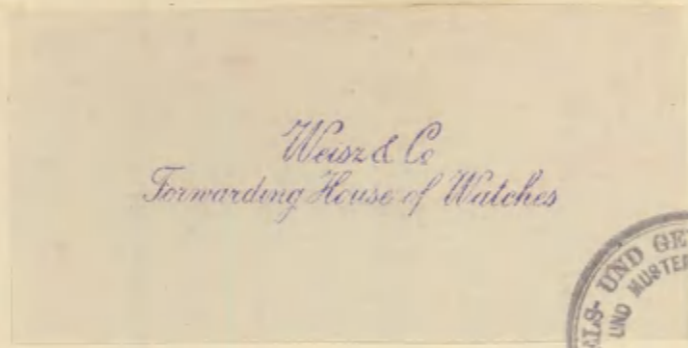 Weisz & Co
Forwarding House of Watches
ALS- UND GE
UND MUSTE